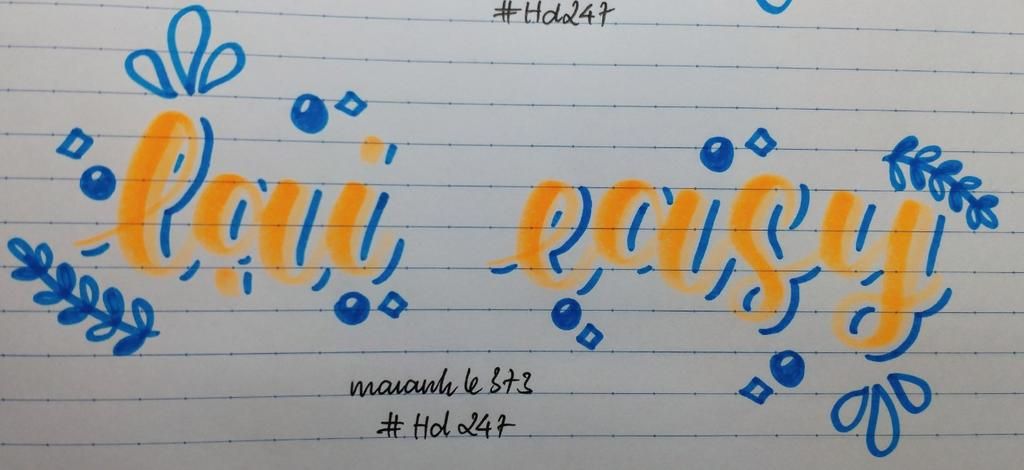 #Hd247
lại easy
maianh le 373
# Hd 247